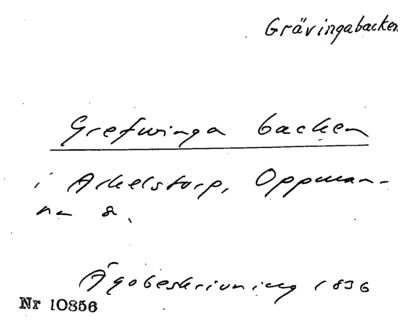 Grävingabacken
Grefwinga backen
i Arkelstorp, Oppman-
na s.
Ägobeskrivning 1836
Nr 10856